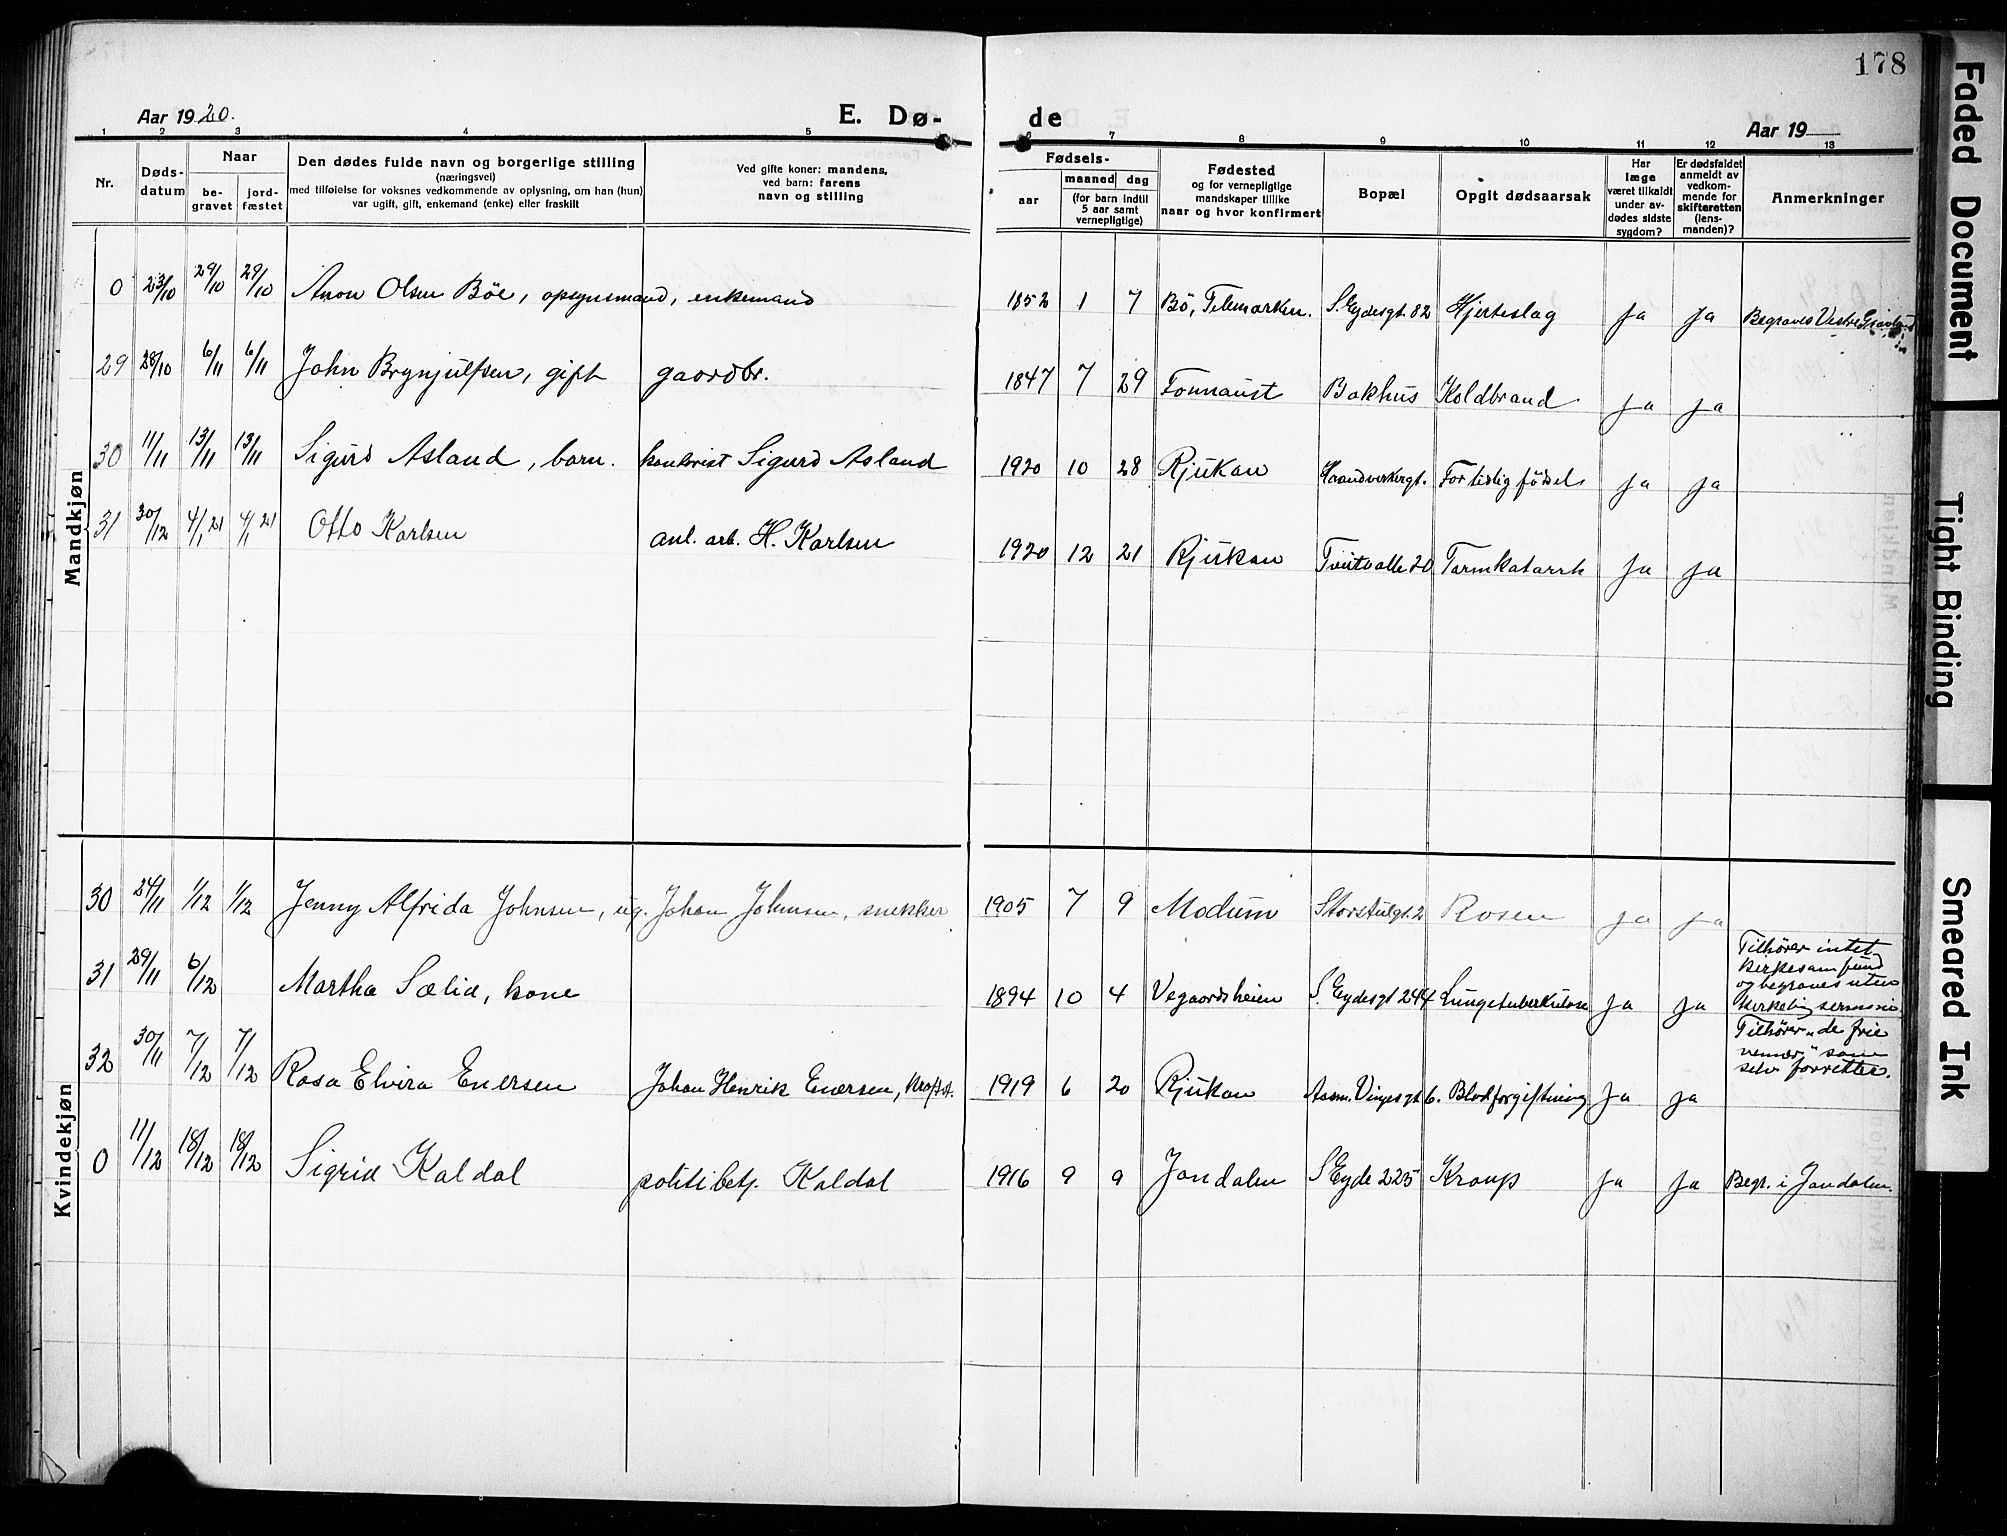 178
Aar 1920.
E. Dø-
de
Aar 19
1 2 3 4 5 6 7 8 9 10 11 12 13
Nr.
Døds-
datum
Naar
be-
gravet
jord-
fæstet
Den dødes fulde navn og borgerlige stilling
(næringsvei)
med tilføielse for voksnes vedkommende av oplysning, om han (hun)
var ugift, gift, enkemand (enke) eller fraskilt
Ved gifte koner: mandens,
ved barn: farens
navn og stilling
Fødsels-
aar
maaned
dag
(for barn indtil
5 aar samt
vernepligtige)
Fødested
og for vernepligtige
mandskaper tillike
naar og hvor konfirmert
Bopæl
Opgit dødsaarsak
Har
læge
været tilkaldt
under av-
dødes sidste
sygdom?
Er dødsfaldet
anmeldt av
vedkom-
mende for
skifteretten
(lens-
manden)?
Anmerkninger
Mandkjøn
0 23/10 29/10 29/10 Anon Olsen Böe, opsynsmand, enkemand 1852 1 7 Bö, Telemarken. S. Eydesgt. 82 Hjerteslag Ja Ja Begraves Vestre Gravlund
29 28/10 6/11 6/11 John Brynjulfsen, gift gaardbr. 1847 7 29 Fonnaust Bakhus Koldbrand Ja Ja
30 11/11 13/11 13/11 Sigurd Asland, barn. kontorist Sigurd Asland 1920 10 28 Rjukan Haandverkergt. For tidlig födsel Ja Ja
31 30/12 4/1 21 4/1 21 Otto Karlsen anl. arb. H. Karlsen 1920 12 21 Rjukan Tveitoalle 20 Tarmkatarrh Ja Ja
Kvindekjøn
30 24/11 1/12 1/12 Jenny Alfrida Johnsen, ug. Johan Johnsen, snekker 1905 7 9 Modum Storstulgt. 2 Rosen Ja Ja
31 29/11 6/12 Martha Sælid, kone 1894 10 4 Vegaardsheien S. Eydesgt 244 Lungetuberkulose Ja Ja Tilhörer intet
kirkesamfund
og begraves uten
kirkelig seremoni
32 30/11 7/12 7/12 Rosa Elvira Enersen Johan Henrik Enersen, kraftst. 1919 6 20 Rjukan Aasm. Vinjesgt 6. Blodforgiftning Ja Ja Tilhörer "de frie
venner" som
selv forretter.
0 11/12 18/12 18/12 Sigrid Kaldal politibetj. Kaldal 1916 9 9 Jondalen S Eyde 225 Kroup Ja Ja Begr. i Jondalen.
Faded Document
Tight Binding
Smeared Ink